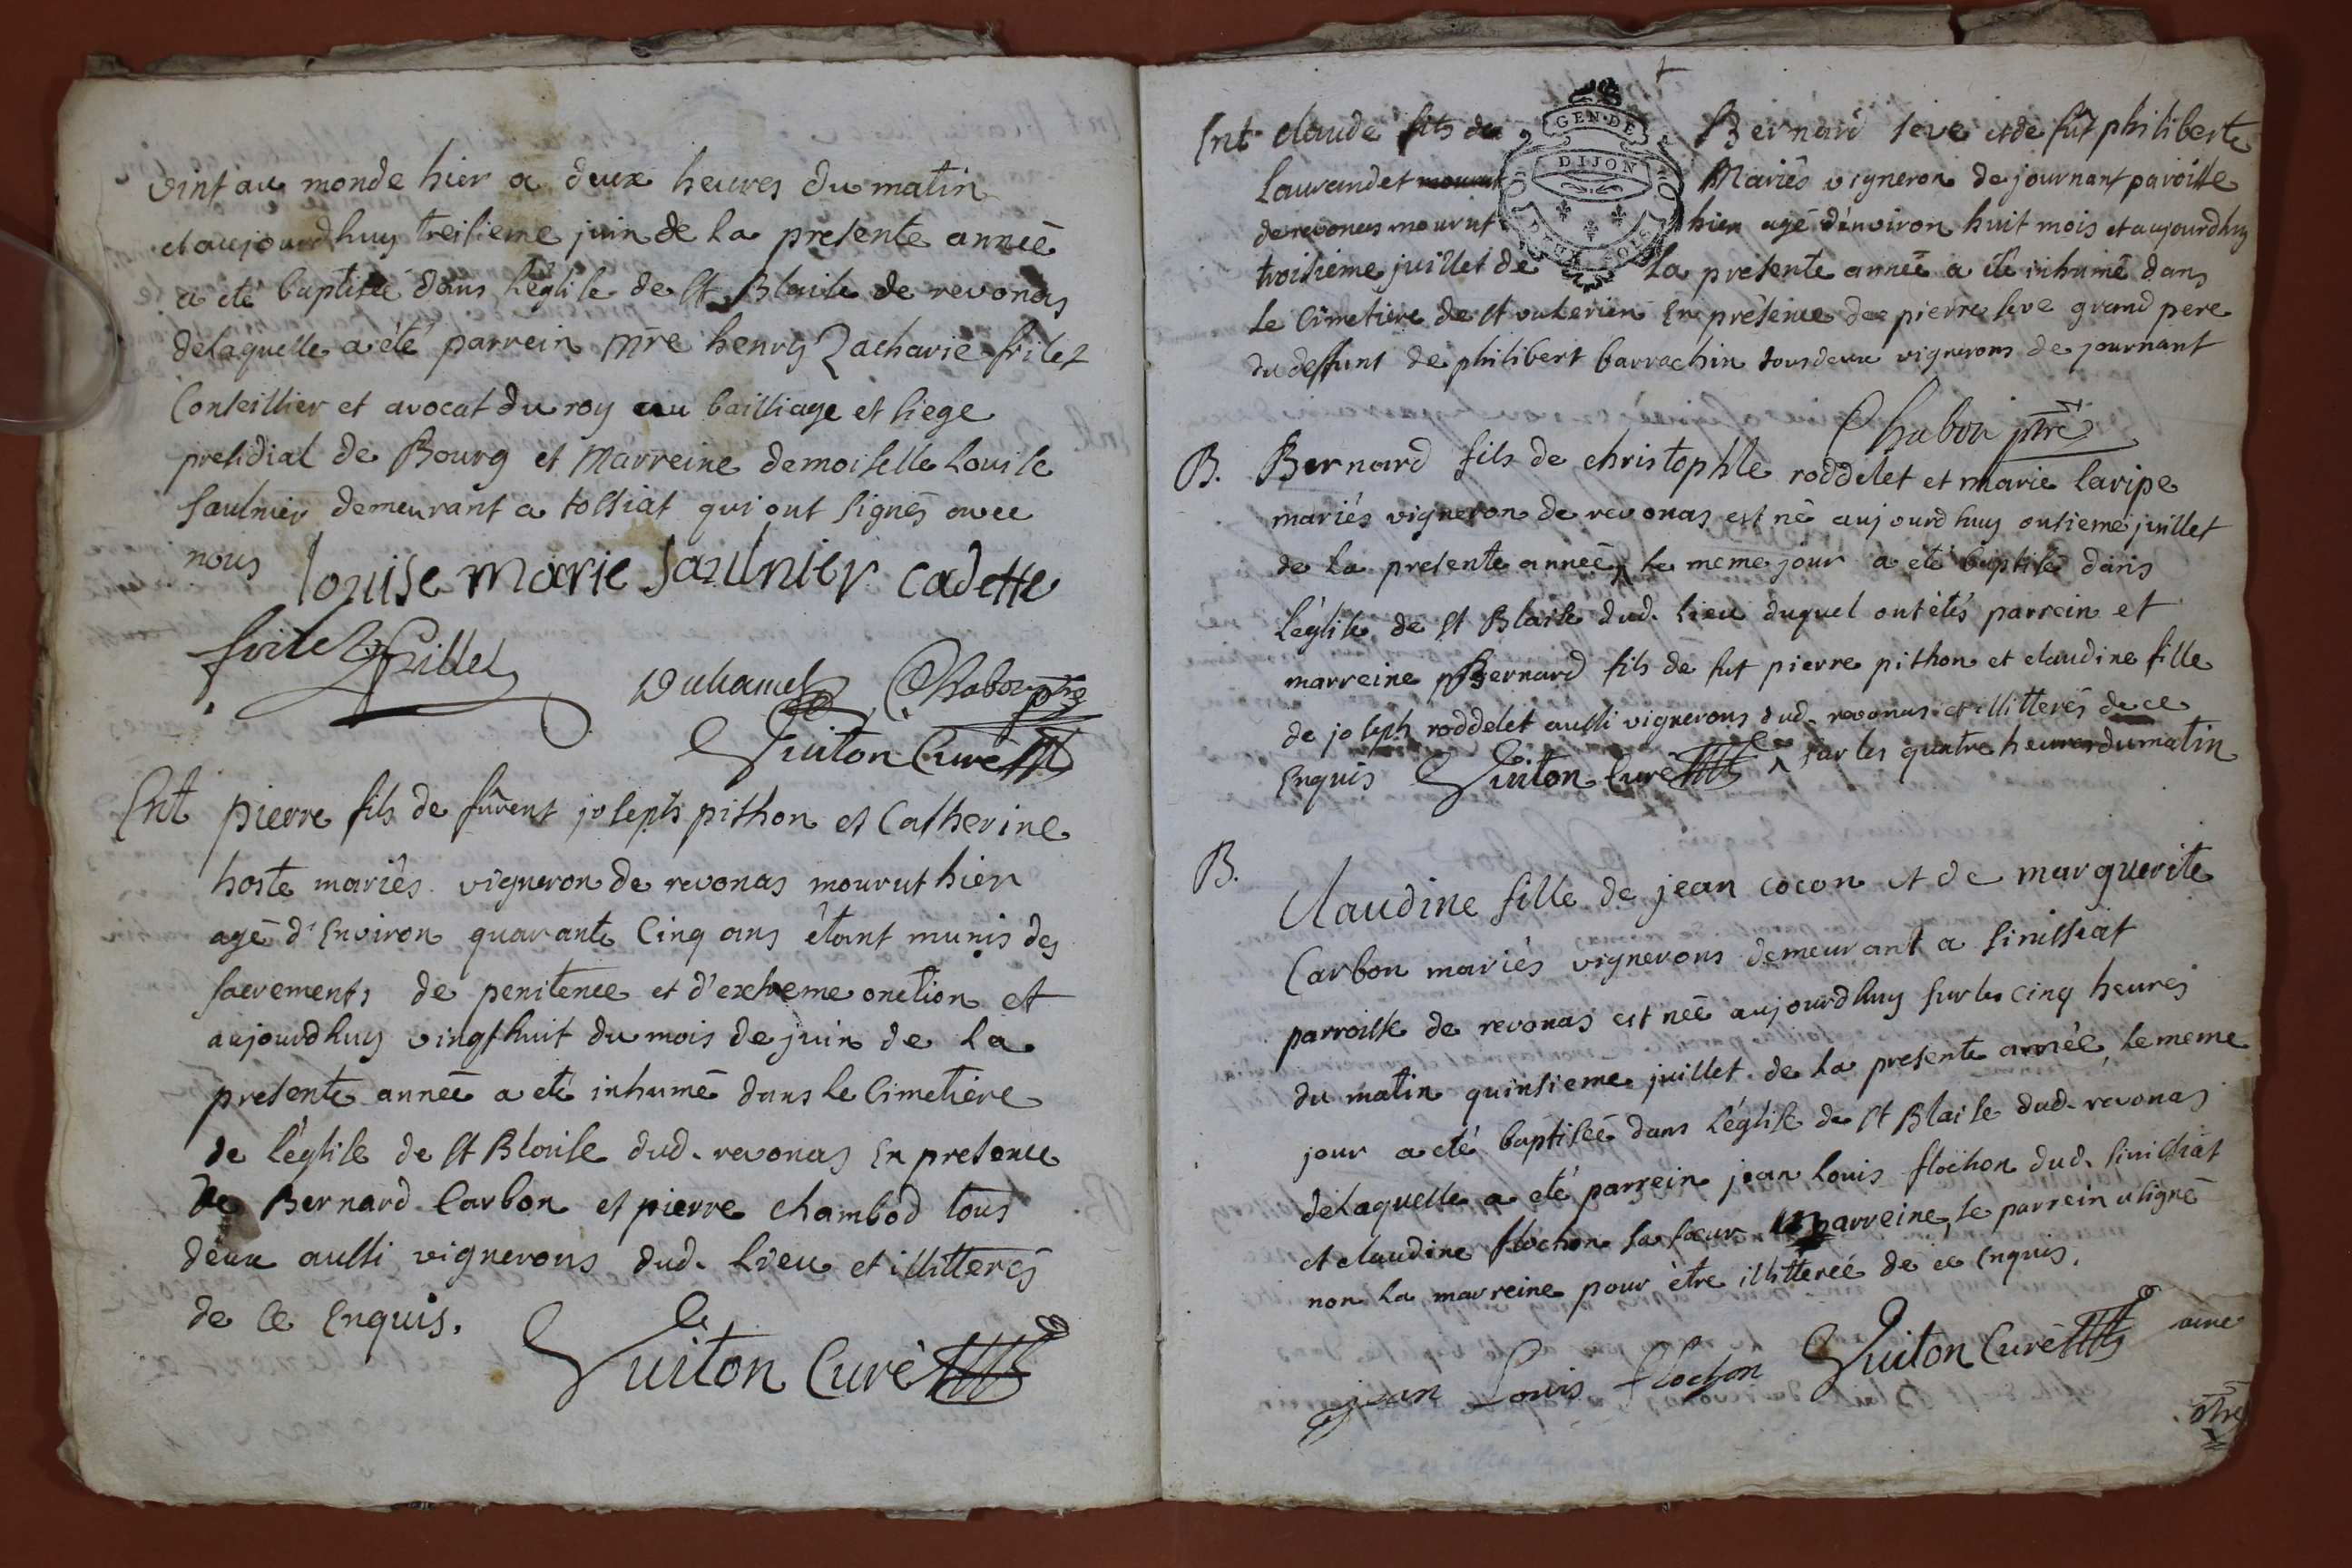 vint au monde hier a deux heures du matin
et aujourdhuy treisieme juin de la presente année
a eté baptisée dans l'église de st Blaise de revonas
de laquelle a été parrein mre henry Zacharie frilet
Conseillier et avocat du roy au bailliage et siege
presidial de Bourg et Marreine demoiselle Louise
saulnier demeurant a tossiat qui ont signés avec
nous louise marie saulnier cadette
frilet frillet
Duhamel Chabou ptre
Guiton Curé
Ent pierre fils de fûrent joseph pithon et Catherine
hoste mariés vigneron de revonas mourut hier
agé d'Environ quarante Cinq ans êtant munis des
sacrements de penitence et d'extreme onction et
aujourdhuy vingt huit du mois de juin de la
presente année a eté inhumé dans le Cimetière
de l'église de st Blaise dud. revonas En presence
de Bernard Carbon et pierre chambod tous
deux aussi vignerons dud. Lieu et illitterés
de Ce Enquis.
Guiton Curé
Ent claude fils de Bernard seve et de fut philiberte
Laurandet mourut Mariés vigneron de journant paroisse
de revonas mourut hier agé d'environ huit mois et aujourdhuy
troisieme juillet de la presente année a été inhumé dans
le Cimetiere de st valerien En présence de pierre seve grand pere
du deffunt de philibert barrachin tous deux vignerons de journant
GEN·DE
DIJON
Chabou ptre
B. Bernard fils de christophle roddelet et marie laripe
mariés vigneron de revonas est né aujourdhuy onsieme juillet
de la presente année ^ le meme jour a eté baptisé dans
l'église de st Blaise dud. lieu duquel ont étés parrein et
marreine Bernard fils de fut pierre pithon et claudine fille
de joseph roddelet aussi vignerons dud. revonas et illitterés de ce
Enquis Guiton Curé ^ sur les quatre heures du matin
B.
Claudine fille de jean cocon et de marguerite
Carbon mariés vignerons demeurant a sinissiat
parroisse de revonas est née aujourdhuy sur les cinq heures
du matin quinsieme juillet de la presente année, le meme
jour a eté baptisée dans l'église de st Blaise dud. revonas
de laquelle a eté parrein jean Louis flochon dud. sinissiat
et claudine flochon sa sœur Marreine, le parrein a signé
non la marreine pour être illitterée de ce Enquis.
jean Louis flochon Guiton Curé